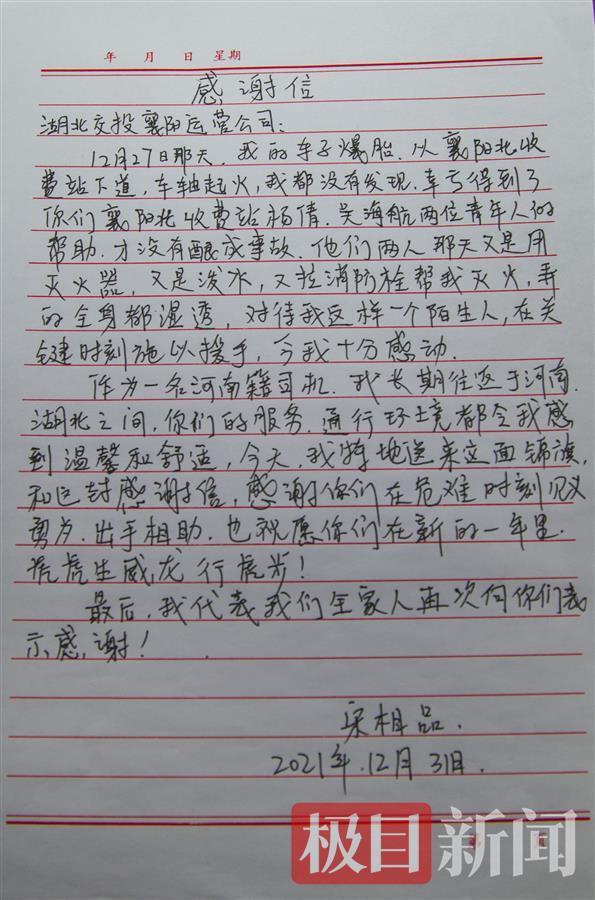 年 月 日 星期
感谢信
湖北交投襄阳运营公司:
12月27日那天,我的车子爆胎.从襄阳北收
费站下道,车轴起火,我都没有发现.幸亏得到了
你们襄阳北收费站杨倩.吴海航两位青年人的
帮助.才没有酿成事故.他们两人那天又是用
灭火器,又是泼水,又拉消防栓帮我灭火,弄
的全身都湿透,对待我这样一个陌生人,在关
键时刻施以援手,令我十分感动.
作为一名河南籍司机.我长期往返于河南.
湖北之间,你们的服务.通行环境都令我感
到温馨和舒适,今天,我特地送来这面锦旗,
和这封感谢信,感谢你们在危难时刻见义
勇为.出手相助.也祝愿你们在新的一年里.
虎虎生威,龙行虎步!
最后,我代表我们全家人再次向你们表
示感谢!
相品.
2021年.12月31日.
极目新闻
第 页